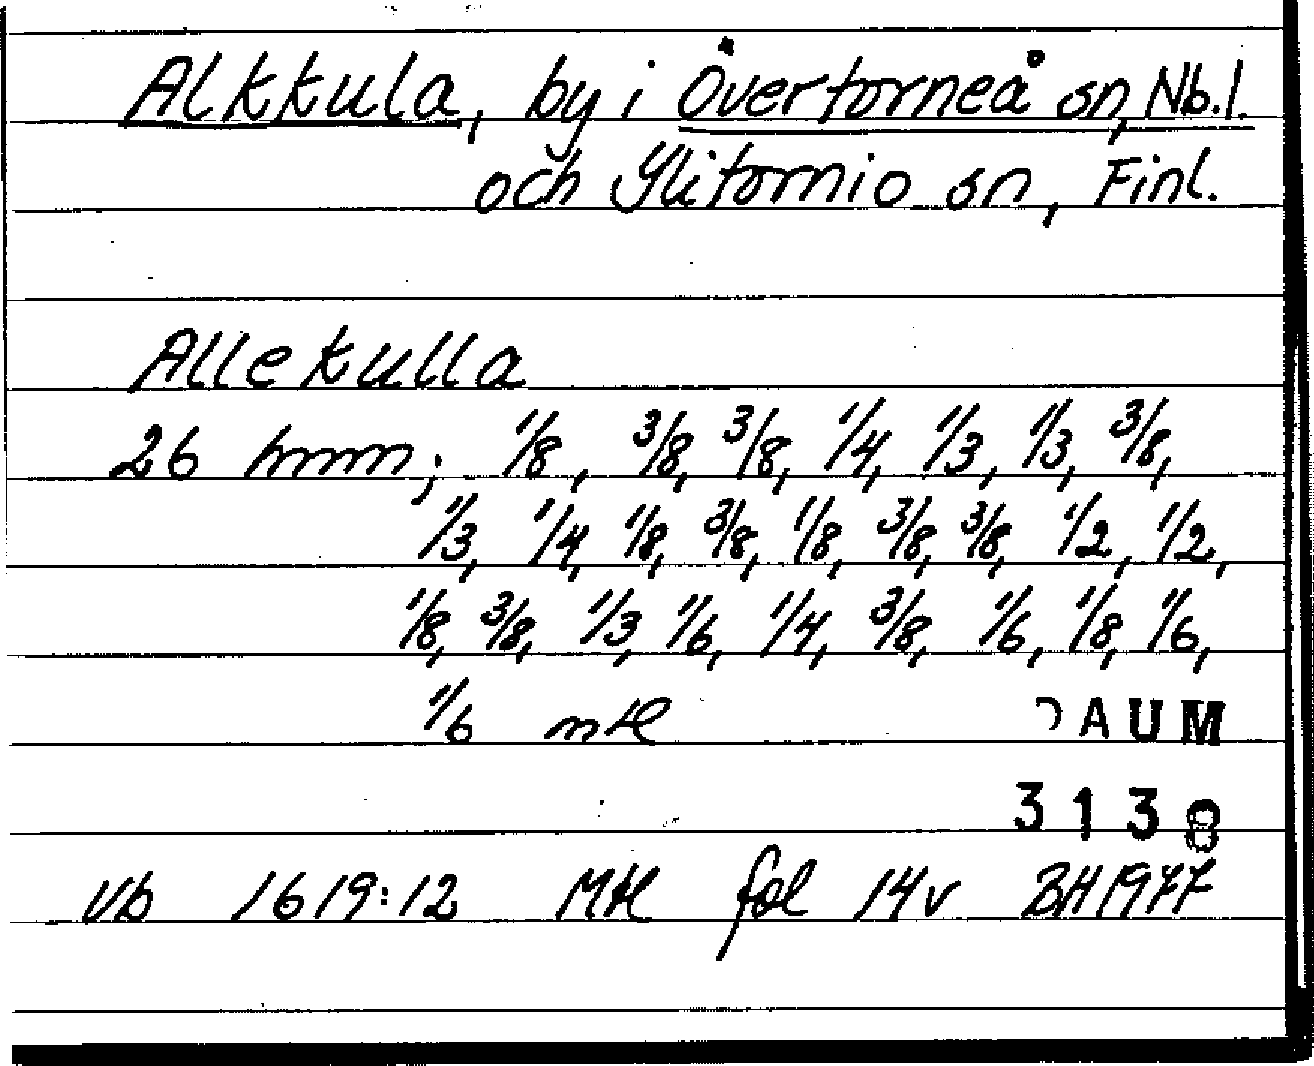 Alkkula, by i Övertorneå sn, Nb.l.
och Ylitornio sn, Finl.
Allekulla
26 hmm; 1/8, 3/8, 3/8, 1/4, 1/3, 1/3, 3/8,
1/3, 1/4, 1/8, 3/8, 1/8, 3/8, 3/8, 1/2, 1/2,
1/8, 3/8, 1/3, 1/6, 1/4, 3/8, 1/6, 1/8, 1/6,
1/6 mtl
DAUM
3138
Vb 1619:12 Mtl fol 14v BH1977